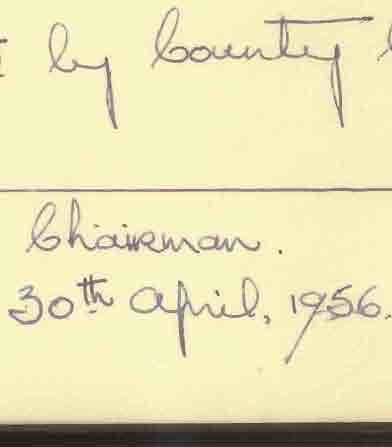 by County
Chairman.
30th April, 1956.